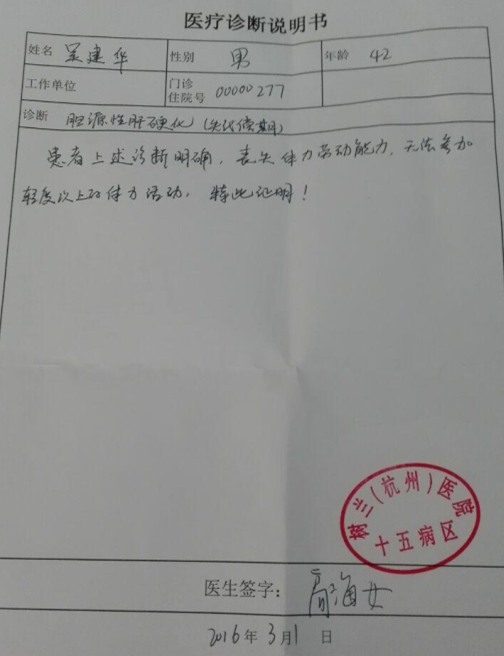 医疗诊断说明书
姓名 吴建华 性别 男 年龄 42
工作单位 门诊住院号 00000277
诊断 胆源性肝硬化(失代偿期)
患者上述诊断明确，丧失体力劳动能力，无法参加
轻度以上的体力活动，特此证明！
树兰(杭州)医院
十五病区
医生签字：
2016年3月1日